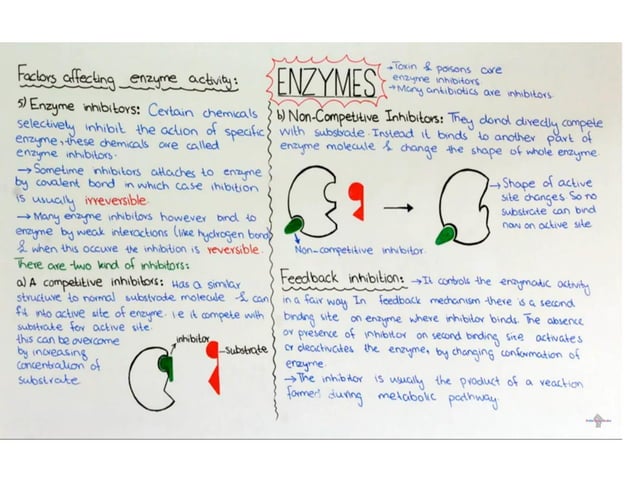 Factors affecting enzyme activity:
5) Enzyme inhibitors: Certain chemicals
selectively inhibit the action of specific
enzyme, these chemicals are called
enzyme inhibitors.
→ Sometime inhibitors attaches to enzyme
by covalent bond in which case ihibition
is usually irreversible.
→ Many enzyme inhibitors however bind to
enzyme by weak interactions (like hydrogen bond)
& when this occure the inhibition is reversible.
There are two kind of inhibitors:
a) A competitive inhibitors: Has a similar
structure to normal substrate molecule & can
fit into active site of enzyme. i.e it compete with
substrate for active site.
this can be overcome
by increasing
concentration of
substrate
inhibitor
substrate
ENZYMES
→ Toxin & poisons are
enzyme inhibitors
→ Many antibiotics are inhibitors
b) Non-Competitive Inhibitors: They donot directly compete
with substrate. Instead it binds to another part of
enzyme molecule & change the shape of whole enzyme
Non-competitive inhibitor.
→ Shape of active
site changes. So no
substrate can bind
now on active site
Feedback inhibition: → It controls the enzymatic activity
in a fair way. In feedback mechanism there is a second
binding site on enzyme where inhibitor binds. The absence
or presence of inhibitor on second binding site activates
or deactivates the enzyme, by changing conformation of
enzyme
→ The inhibitor is usually the product of a reaction
formed during metabolic pathway.